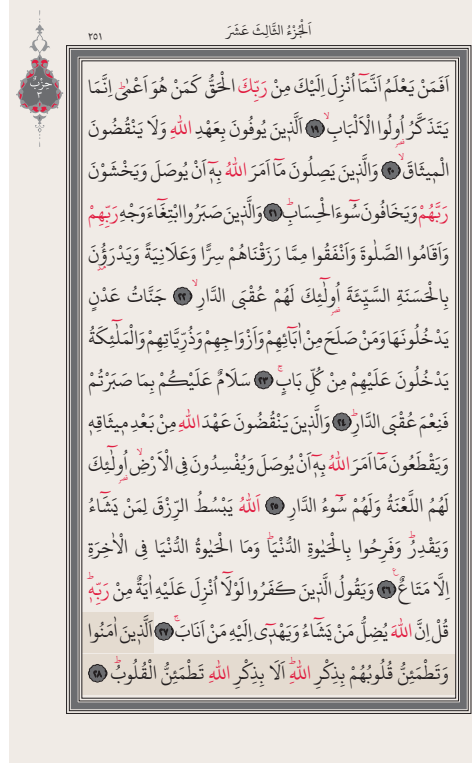 اَلْجُزْءُ الثَّالِثَ عَشَرَ
٢٥١
حِزْب
٣
اَفَمَنْ يَعْلَمُ اَنَّمَٓا اُنْزِلَ اِلَيْكَ مِنْ رَبِّكَ الْحَقُّ كَمَنْ هُوَ اَعْمٰىۜ اِنَّمَا
يَتَذَكَّرُ اُولُوا الْاَلْبَابِۙ ﴿١٩﴾ اَلَّذِينَ يُوفُونَ بِعَهْدِ اللّٰهِ وَلَا يَنْقُضُونَ
الْمِيثَاقَۙ ﴿٢٠﴾ وَالَّذِينَ يَصِلُونَ مَٓا اَمَرَ اللّٰهُ بِهٖٓ اَنْ يُوصَلَ وَيَخْشَوْنَ
رَبَّهُمْ وَيَخَافُونَ سُٓوءَ الْحِسَابِۜ ﴿٢١﴾ وَالَّذِينَ صَبَرُوا ابْتِغَٓاءَ وَجْهِ رَبِّهِمْ
وَاَقَامُوا الصَّلٰوةَ وَاَنْفَقُوا مِمَّا رَزَقْنَاهُمْ سِرًّا وَعَلَانِيَةً وَيَدْرَؤُ۫نَ
بِالْحَسَنَةِ السَّيِّئَةَ اُو۬لٰٓئِكَ لَهُمْ عُقْبَى الدَّارِۙ ﴿٢٢﴾ جَنَّاتُ عَدْنٍ
يَدْخُلُونَهَا وَمَنْ صَلَحَ مِنْ اٰبَٓائِهِمْ وَاَزْوَاجِهِمْ وَذُرِّيَّاتِهِمْ وَالْمَلٰٓئِكَةُ
يَدْخُلُونَ عَلَيْهِمْ مِنْ كُلِّ بَابٍۚ ﴿٢٣﴾ سَلَامٌ عَلَيْكُمْ بِمَا صَبَرْتُمْ
فَنِعْمَ عُقْبَى الدَّارِۜ ﴿٢٤﴾ وَالَّذِينَ يَنْقُضُونَ عَهْدَ اللّٰهِ مِنْ بَعْدِ مِيثَاقِهٖ
وَيَقْطَعُونَ مَٓا اَمَرَ اللّٰهُ بِهٖٓ اَنْ يُوصَلَ وَيُفْسِدُونَ فِى الْاَرْضِۙ اُو۬لٰٓئِكَ
لَهُمُ اللَّعْنَةُ وَلَهُمْ سُٓوءُ الدَّارِ ﴿٢٥﴾ اَللّٰهُ يَبْسُطُ الرِّزْقَ لِمَنْ يَشَٓاءُ
وَيَقْدِرُۜ وَفَرِحُوا بِالْحَيٰوةِ الدُّنْيَاۜ وَمَا الْحَيٰوةُ الدُّنْيَا فِى الْاٰخِرَةِ
اِلَّا مَتَاعٌ۟ ﴿٢٦﴾ وَيَقُولُ الَّذِينَ كَفَرُوا لَوْلَٓا اُنْزِلَ عَلَيْهِ اٰيَةٌ مِنْ رَبِّهٖۜ
قُلْ اِنَّ اللّٰهَ يُضِلُّ مَنْ يَشَٓاءُ وَيَهْدٖٓى اِلَيْهِ مَنْ اَنَابَۚ ﴿٢٧﴾ اَلَّذِينَ اٰمَنُوا
وَتَطْمَئِنُّ قُلُوبُهُمْ بِذِكْرِ اللّٰهِۜ اَلَا بِذِكْرِ اللّٰهِ تَطْمَئِنُّ الْقُلُوبُۜ ﴿٢٨﴾